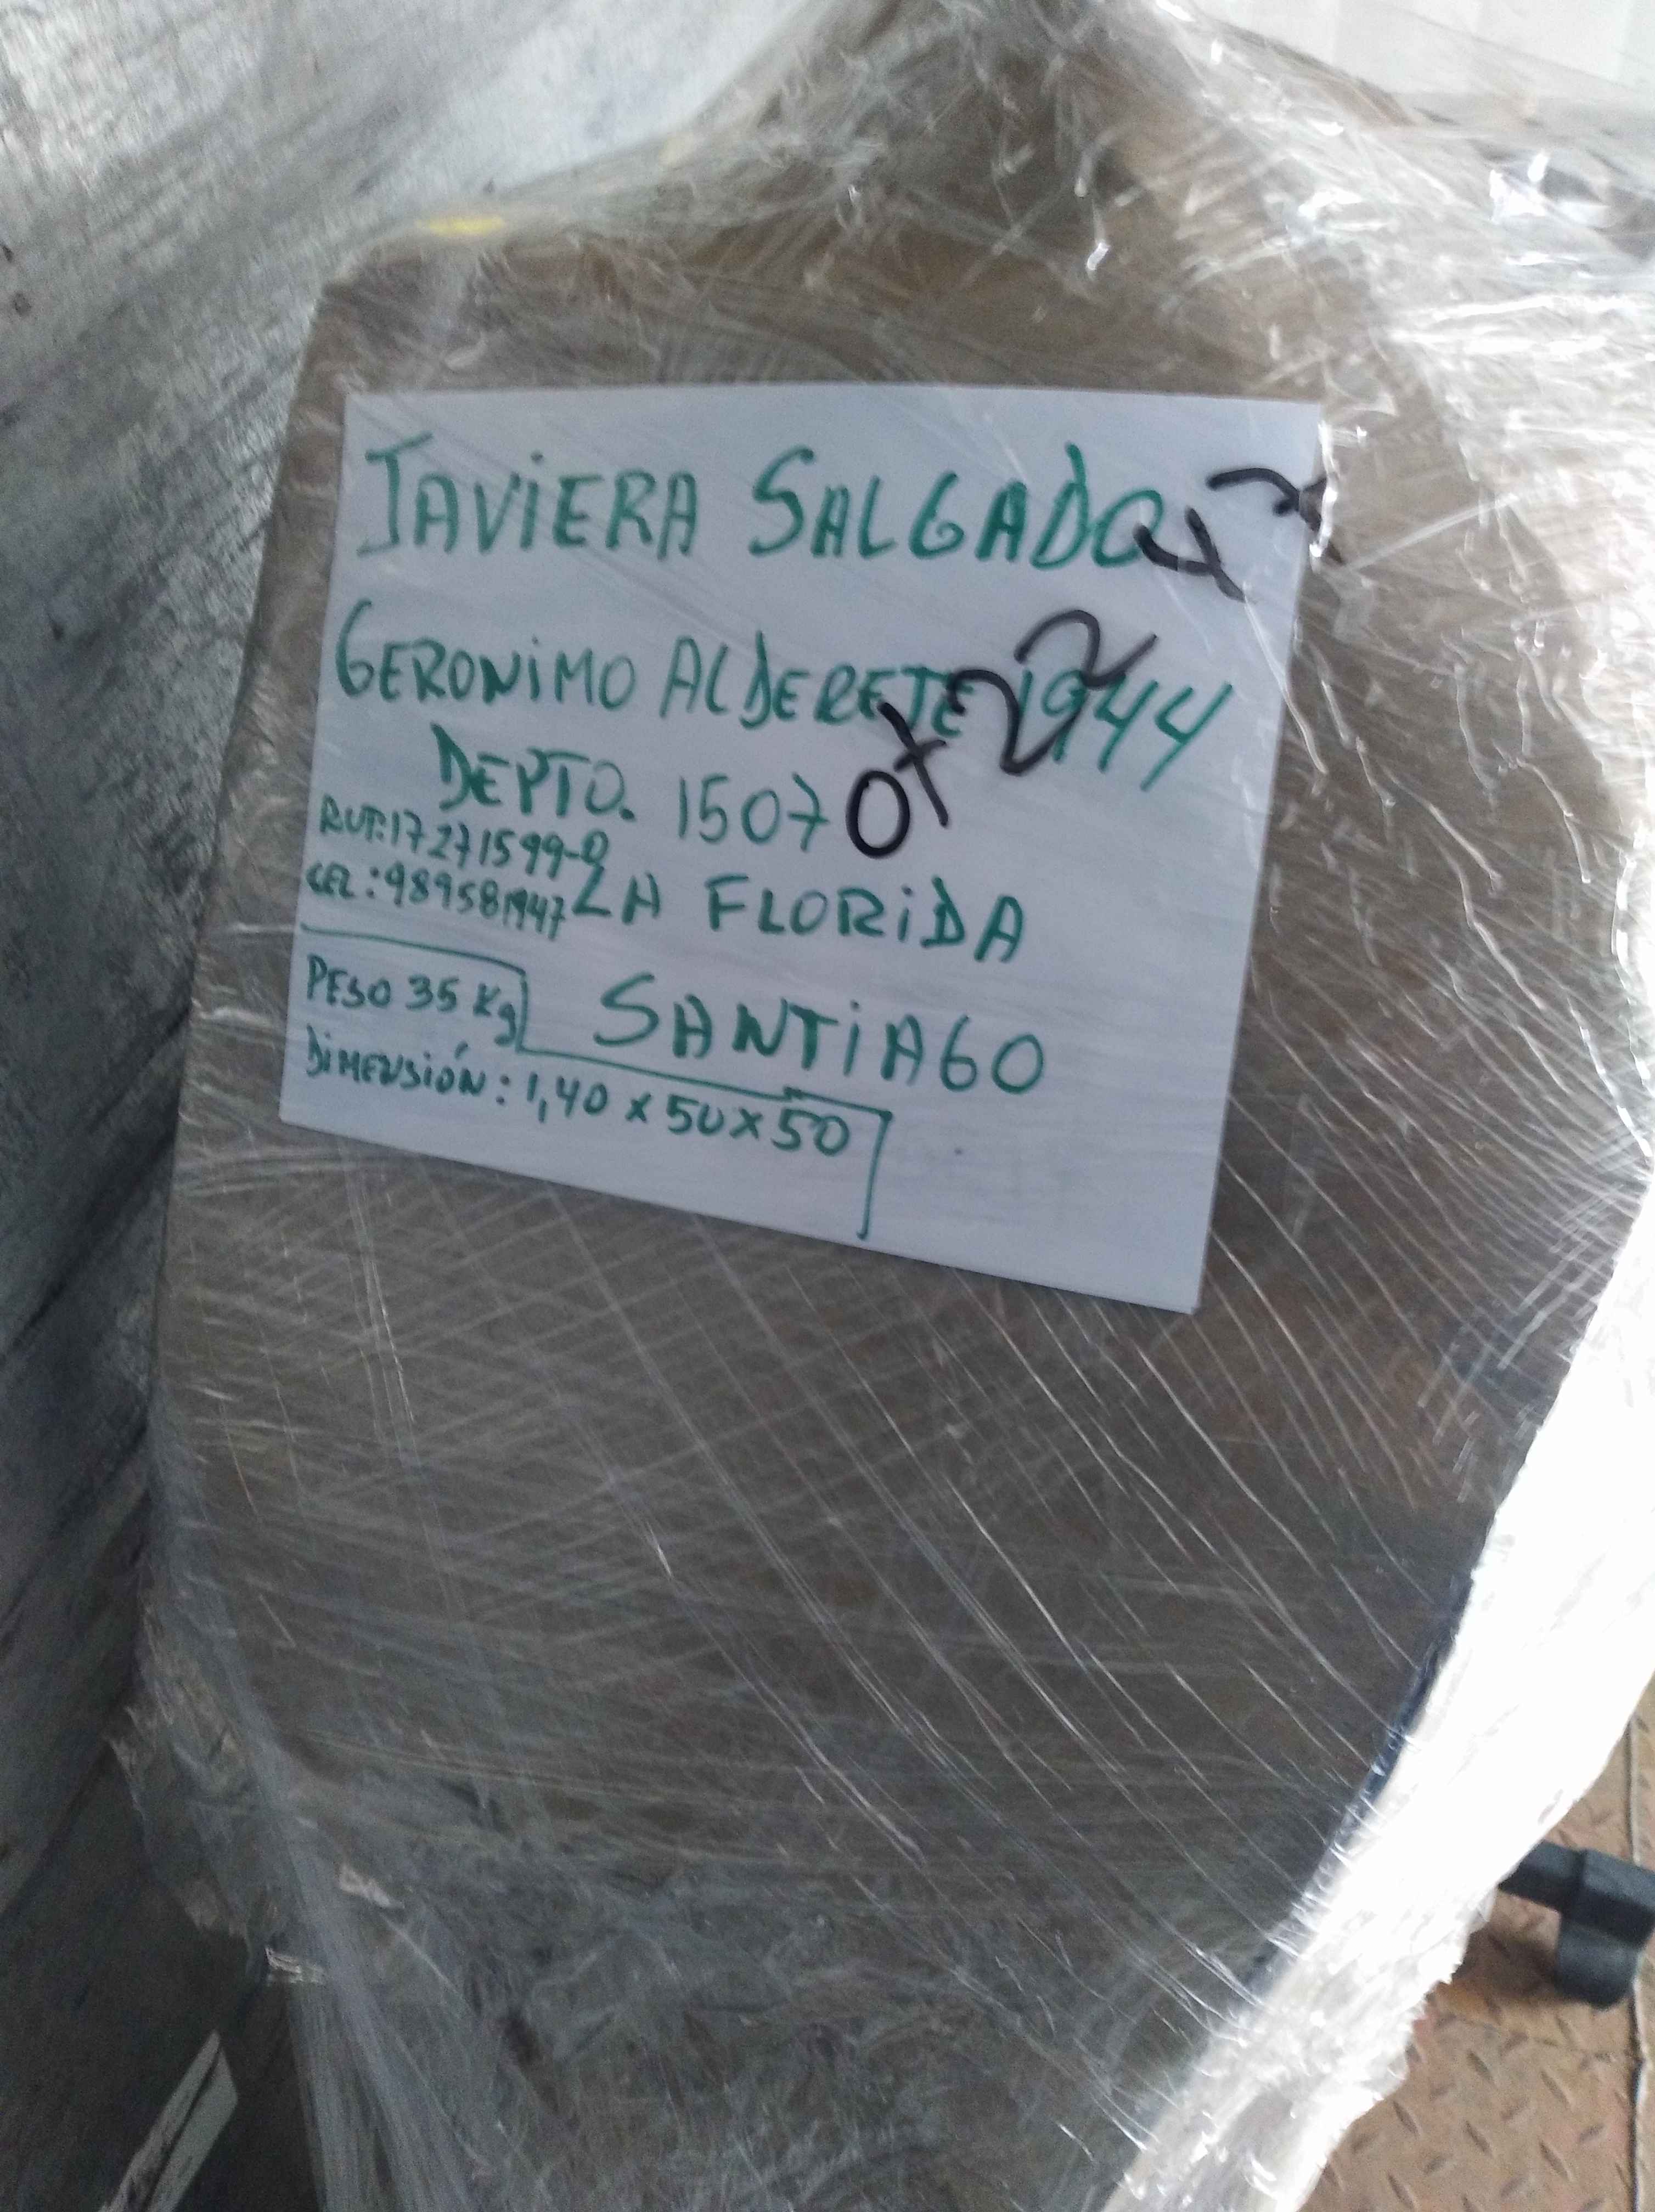 JAVIERA SALGADO
GERONIMO ALDERETE 1944
DEPTO. 1507
RUT: 17271599-0
CEL: 989581947
LA FLORIDA
SANTIAGO
PESO 35 Kg
DIMENSIÓN: 1,40 x 50 x 50